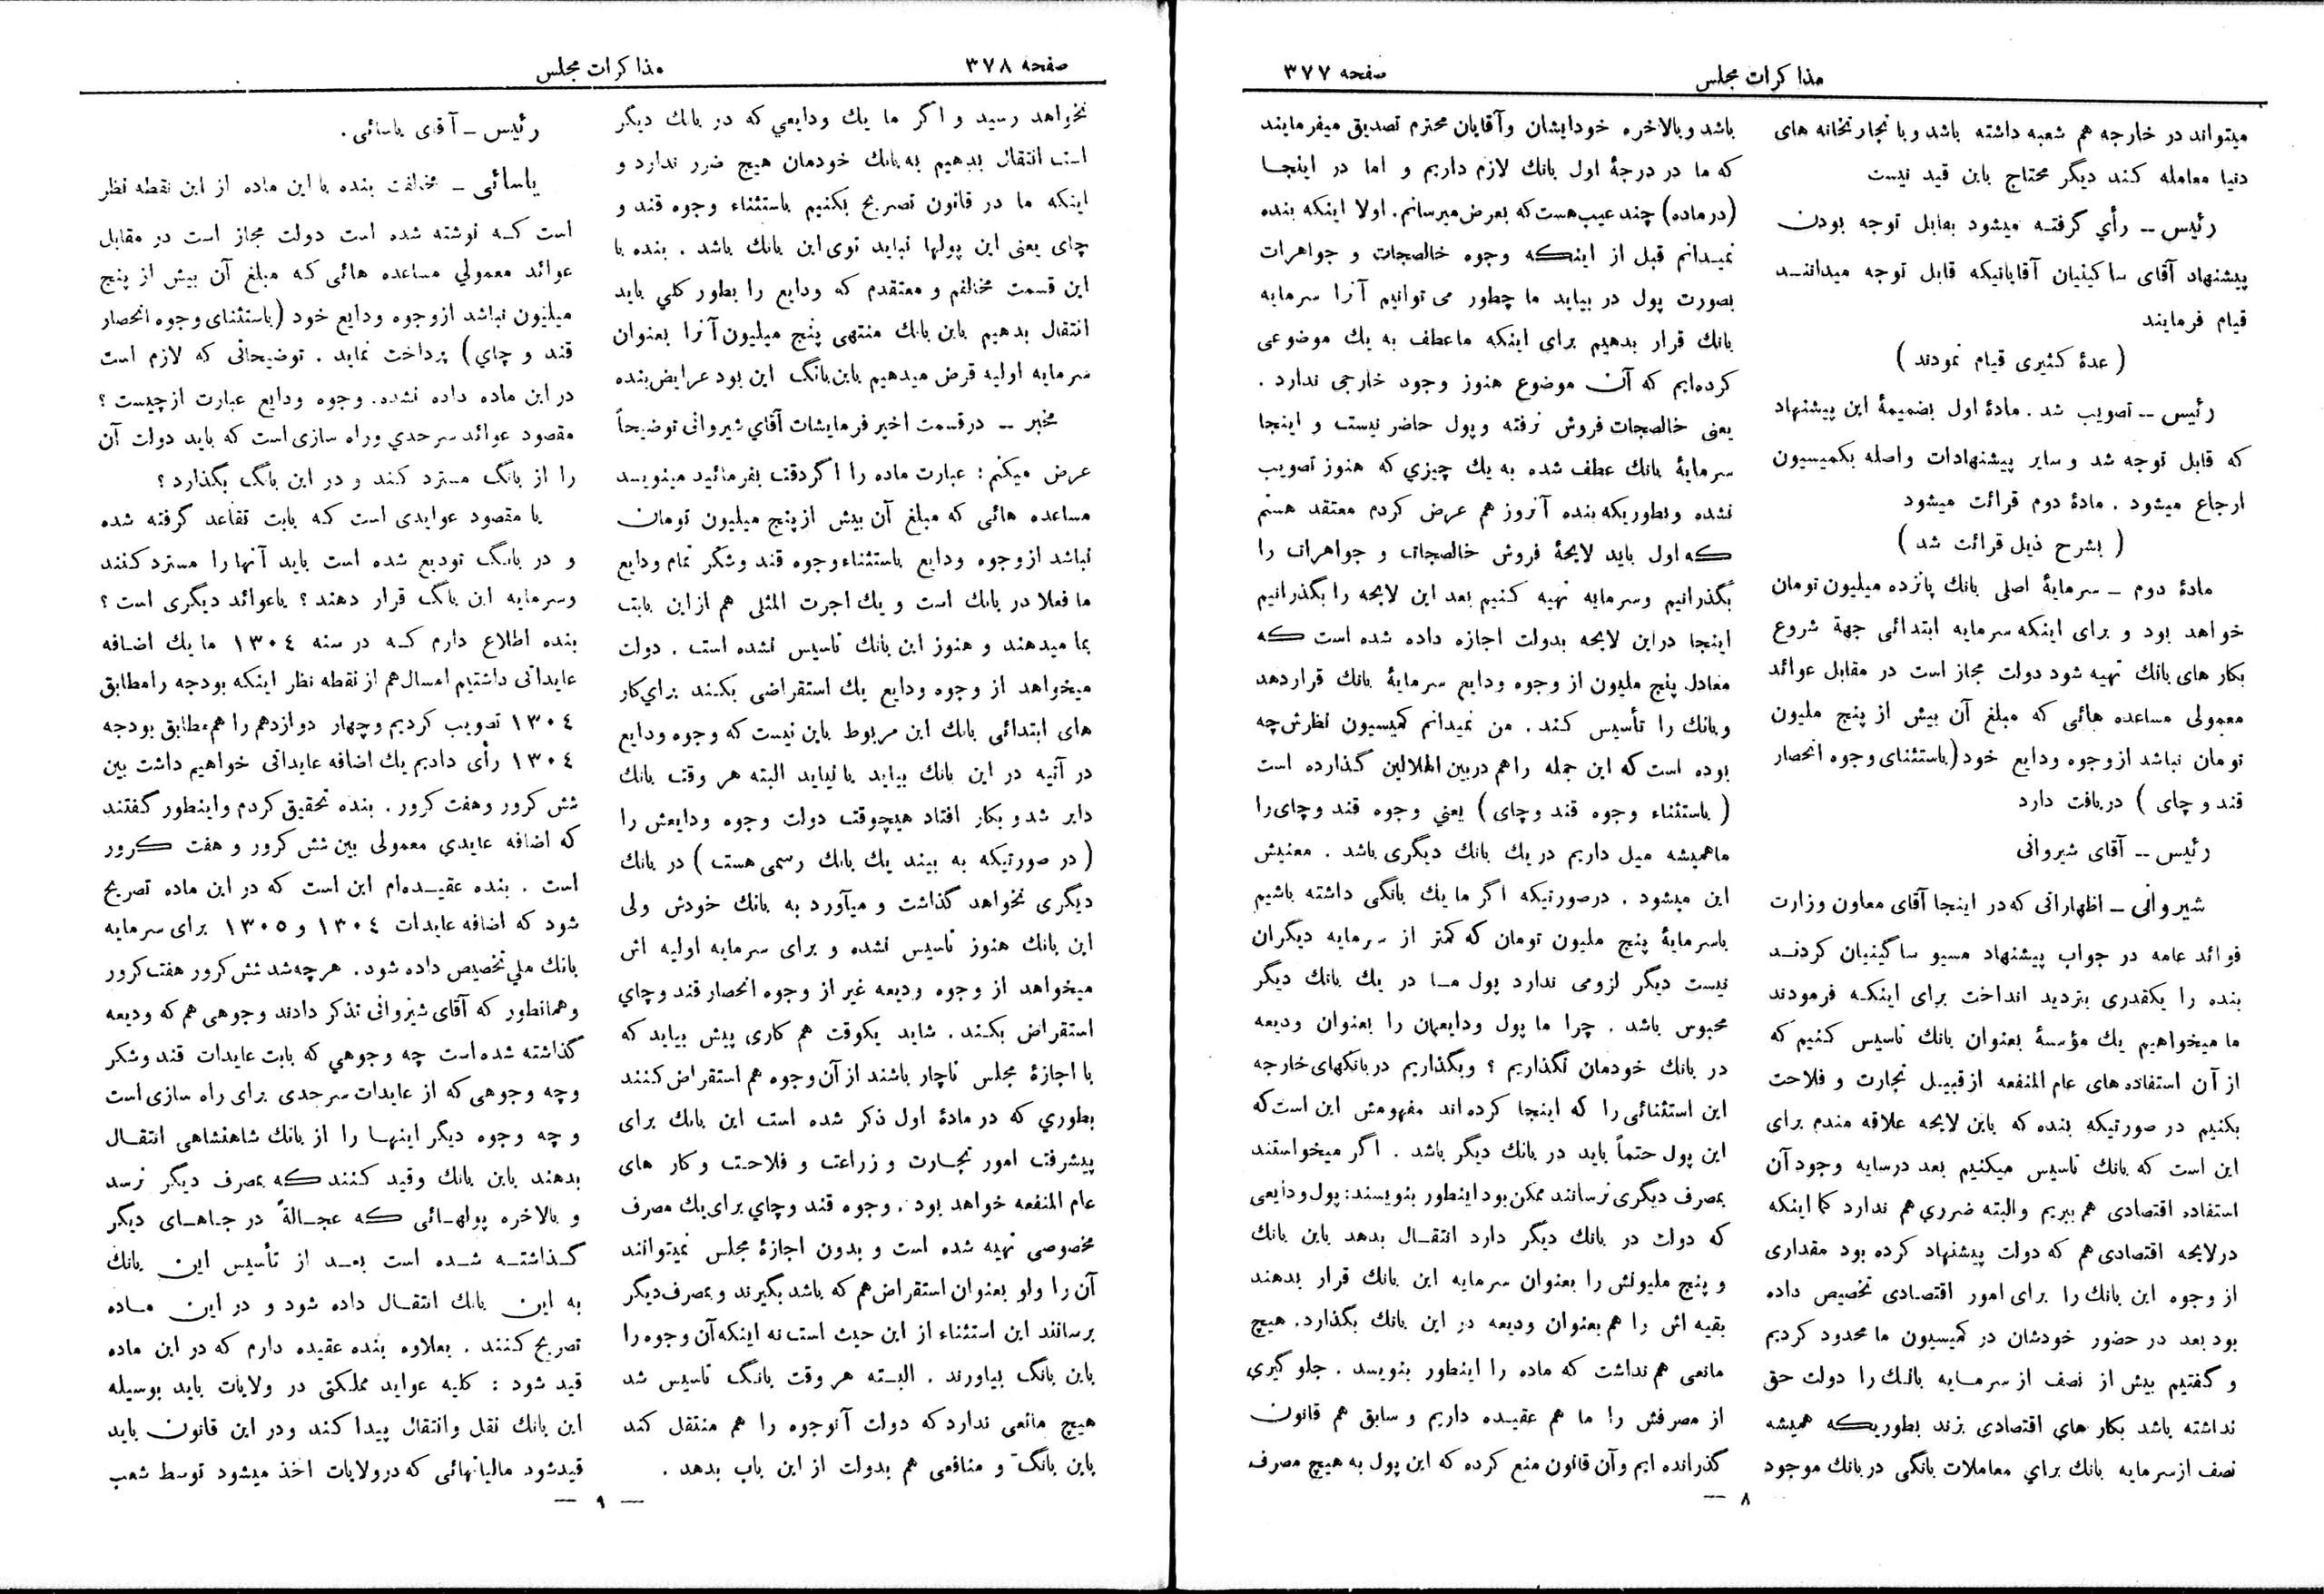 مذاکرات مجلس
صفحه ۳۷۷
میتواند در خارجه هم شعبه داشته باشد و با تجارتخانه های
دنیا معامله کند دیگر محتاج باین قید نیست
رئیس – رأی گرفته میشود بقابل توجه بودن
پیشنهاد آقای ساکینیان آقایانیکه قابل توجه میدانند
قیام فرمایند
( عدهٔ کثیری قیام نمودند )
رئیس – تصویب شد . مادهٔ اول بضمیمهٔ این پیشنهاد
که قابل توجه شد و سایر پیشنهادات واصله بکمیسیون
ارجاع میشود . مادهٔ دوم قرائت میشود
( بشرح ذیل قرائت شد )
مادهٔ دوم – سرمایهٔ اصلی بانك پانزده میلیون تومان
خواهد بود و برای اینکه سرمایه ابتدائی جهة شروع
بکار های بانك تهیه شود دولت مجاز است در مقابل عوائد
معمولی مساعده هائی که مبلغ آن بیش از پنج ملیون
تومان نباشد از وجوه ودایع خود (باستثنای وجوه انحصار
قند و چای ) دریافت دارد
رئیس – آقای شیروانی
شیروانی – اظهاراتی که در اینجا آقای معاون وزارت
فوائد عامه در جواب پیشنهاد مسیو ساگینیان کردند
بنده را یکقدری بتردید انداخت برای اینکه فرمودند
ما میخواهیم یك مؤسسهٔ بعنوان بانك تاسیس کنیم که
از آن استفاده های عام المنفعه از قبیل تجارت و فلاحت
بکنیم در صورتیکه بنده که باین لایحه علاقه مندم برای
این است که بانك تاسیس میکنیم بعد درسایه وجود آن
استفاده اقتصادی هم ببریم والبته ضرری هم ندارد کما اینکه
در لایحه اقتصادی هم که دولت پیشنهاد کرده بود مقداری
از وجوه این بانك را برای امور اقتصادی تخصیص داده
بود بعد در حضور خودشان در کمیسیون ما محدود کردیم
و گفتیم بیش از نصف از سرمایه بانك را دولت حق
نداشته باشد بکار های اقتصادی بزند بطوریکه همیشه
نصف از سرمایه بانك برای معاملات بانگی در بانك موجود
باشد و بالاخره خود ایشان و آقایان محترم تصدیق میفرمایند
که ما در درجهٔ اول بانك لازم داریم و اما در اینجا
(در ماده) چند عیب هست که بعرض میرسانم. اولا اینکه بنده
نمیدانم قبل از اینکه وجوه خالصجات و جواهرات
بصورت پول در بیاید ما چطور می توانیم آنرا سرمایه
بانك قرار بدهیم برای اینکه ما عطف به یك موضوعی
کرده‌ایم که آن موضوع هنوز وجود خارجی ندارد .
یعنی خالصجات فروش نرفته و پول حاضر نیست و اینجا
سرمایهٔ بانك عطف شده به یك چیزی که هنوز تصویب
نشده و بطوریکه بنده آنروز هم عرض کردم معتقد هستم
که اول باید لایحهٔ فروش خالصجات و جواهرات را
بگذرانیم وسرمایه تهیه کنیم بعد این لایحه را بگذرانیم
اینجا در این لایحه بدولت اجازه داده شده است که
معادل پنج ملیون از وجوه ودایع سرمایهٔ بانك قرار دهد
و بانك را تأسیس کند . من نمیدانم کمیسیون نظرش چه
بوده است که این جمله را هم در بین الهلالین گذارده است
( باستثناء وجوه قند وچای ) یعنی وجوه قند وچای را
ما همیشه میل داریم در یك بانك دیگری باشد . معنیش
این میشود . در صورتیکه اگر ما یك بانگی داشته باشیم
باسرمایهٔ پنج ملیون تومان که کمتر از سرمایه دیگران
نیست دیگر لزومی ندارد پول ما در یك بانك دیگر
محبوس باشد . چرا ما پول ودایعمان را بعنوان ودیعه
در بانك خودمان نگذاریم ؟ وبگذاریم در بانکهای خارجه
این استثنائی را که اینجا کرده‌اند مفهومش این است که
این پول حتماً باید در بانك دیگر باشد . اگر میخواستند
بمصرف دیگری نرسانند ممکن بود اینطور بنویسند: پول ودایعی
که دولت در بانك دیگر دارد انتقال بدهد باین بانك
و پنج ملیونش را بعنوان سرمایه این بانك قرار بدهند
بقیه اش را هم بعنوان ودیعه در این بانك بگذارد. هیچ
مانعی هم نداشت که ماده را اینطور بنویسد . جلو گیری
از مصرفش را ما هم عقیده داریم و سابق هم قانون
گذرانده ایم و آن قانون منع کرده که این پول به هیچ مصرف
۸ —
صفحه ۳۷۸
مذاکرات مجلس
نخواهد رسید و اگر ما یك ودایعی که در بانك دیگر
است انتقال بدهیم به بانك خودمان هیچ ضرر ندارد و
اینکه ما در قانون تصریح بکنیم باستثناء وجوه قند و
چای یعنی این پولها نباید توی این بانك باشد . بنده با
این قسمت مخالفم و معتقدم که ودایع را بطور کلی باید
انتقال بدهیم باین بانك منتهی پنج میلیون آنرا بعنوان
سرمایه اولیه قرض میدهیم باین بانگ این بود عرایض بنده
مخبر – در قسمت اخیر فرمایشات آقای شیروانی توضیحاً
عرض میکنم : عبارت ماده را اگر دقت بفرمائید مینویسد
مساعده هائی که مبلغ آن بیش از پنج میلیون تومان
نباشد از وجوه ودایع باستثناء وجوه قند وشکر تمام ودایع
ما فعلا در بانك است و یك اجرت المثلی هم از این بابت
بما میدهند و هنوز این بانك تاسیس نشده است . دولت
میخواهد از وجوه ودایع یك استقراضی بکند برای کار
های ابتدائی بانك این مربوط باین نیست که وجوه ودایع
در آتیه در این بانك بیاید یا نیاید البته هر وقت بانك
دایر شد و بکار افتاد هیچوقت دولت وجوه ودایعش را
( در صورتیکه به بیند یك بانك رسمی هست ) در بانك
دیگری نخواهد گذاشت و میآورد به بانك خودش ولی
این بانك هنوز تاسیس نشده و برای سرمایه اولیه اش
میخواهد از وجوه ودیعه غیر از وجوه انحصار قند وچای
استقراض بکند . شاید یکوقت هم کاری پیش بیاید که
با اجازهٔ مجلس ناچار باشند از آن وجوه هم استقراض کنند
بطوری که در مادهٔ اول ذکر شده است این بانك برای
پیشرفت امور تجارت و زراعت و فلاحت و کار های
عام المنفعه خواهد بود . وجوه قند وچای برای یك مصرف
مخصوصی تهیه شده است و بدون اجازهٔ مجلس نمیتوانند
آن را ولو بعنوان استقراض هم که باشد بگیرند و بمصرف دیگر
برسانند این استثناء از این حیث است نه اینکه آن وجوه را
باین بانگ بیاورند . البته هر وقت بانگ تاسیس شد
هیچ مانعی ندارد که دولت آنوجوه را هم منتقل کند
باین بانگ و منافعی هم بدولت از این باب بدهد .
رئیس – آقای یاسائی .
یاسائی – مخالفت بنده با این ماده از این نقطه نظر
است که نوشته شده است دولت مجاز است در مقابل
عوائد معمولی مساعده هائی که مبلغ آن بیش از پنج
میلیون نباشد از وجوه ودایع خود (باستثنای وجوه انحصار
قند و چای) پرداخت نماید . توضیحاتی که لازم است
در این ماده داده نشده. وجوه ودایع عبارت از چیست ؟
مقصود عوائد سرحدی وراه سازی است که باید دولت آن
را از بانگ مسترد کند و در این بانگ بگذارد ؟
یا مقصود عوایدی است که بابت تقاعد گرفته شده
و در بانگ تودیع شده است باید آنها را مسترد کنند
وسرمایه این بانگ قرار دهند ؟ یا عوائد دیگری است ؟
بنده اطلاع دارم که در سنه ۱۳۰٤ ما یك اضافه
عایداتی داشتیم امسال هم از نقطه نظر اینکه بودجه را مطابق
۱۳۰٤ تصویب کردیم وچهار دوازدهم را هم مطابق بودجه
۱۳۰٤ رأی دادیم یك اضافه عایداتی خواهیم داشت بین
شش کرور وهفت کرور . بنده تحقیق کردم و اینطور گفتند
که اضافه عایدی معمولی بین شش کرور و هفت کرور
است . بنده عقیده‌ام این است که در این ماده تصریح
شود که اضافه عایدات ۱۳۰٤ و ۱۳۰٥ برای سرمایه
بانك ملی تخصیص داده شود . هرچه شد شش کرور هفت کرور
وهمانطور که آقای شیروانی تذکر دادند وجوهی هم که ودیعه
گذاشته شده است چه وجوهی که بابت عایدات قند وشکر
وچه وجوهی که از عایدات سرحدی برای راه سازی است
و چه وجوه دیگر اینها را از بانك شاهنشاهی انتقال
بدهند باین بانك وقید کنند که بمصرف دیگر نرسد
و بالاخره پولهائی که عجالةً در جاهای دیگر
گذاشته شده است بعد از تأسیس این بانك
به این بانك انتقال داده شود و در این ماده
تصریح کنند . بعلاوه بنده عقیده دارم که در این ماده
قید شود : کلیه عواید مملکتی در ولایات باید بوسیله
این بانك نقل وانتقال پیدا کند ودر این قانون باید
قیدشود مالیاتهائی که درولایات اخذ میشود توسط شعب
— ۹ —